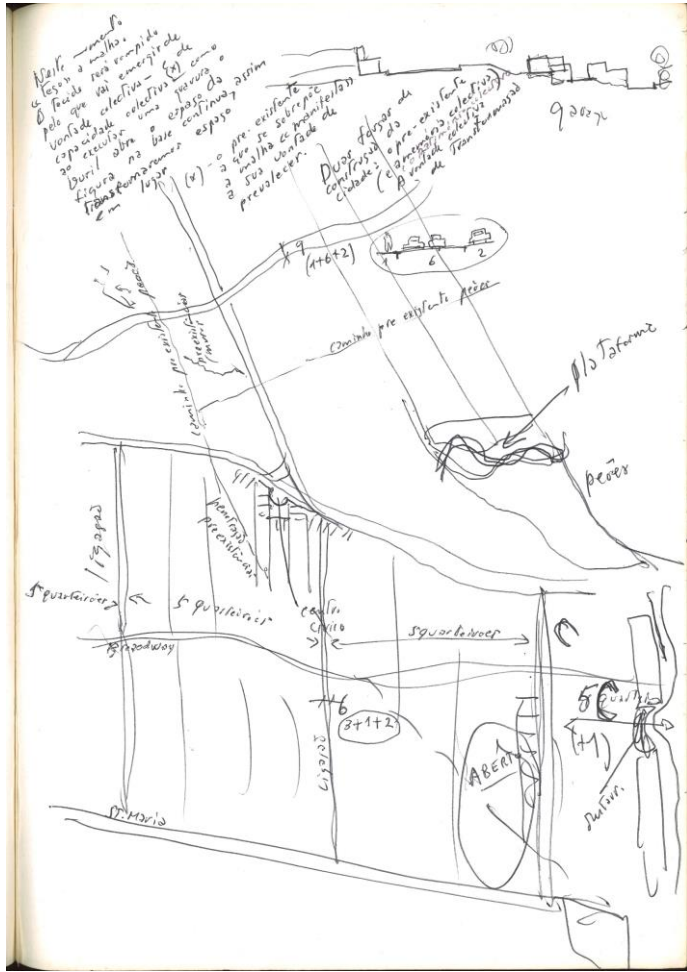 Neste momento
"tesou a malha.
O tecido será rompido
pelo que vai emergir de
vontade colectiva - (x) de
capacidade colectiva como
ao executar uma gravura o
buril abre o espaço da
figura na base contínua, assim
transformaremos espaço
em lugar
(x) - o pre-existente
a que se sobrepõe
a malha "manifesta"
a sua vontade de
prevalecer.
Duas forças de
construção da
cidade: o pre-existente
(e a memória colectiva)
A vontade colectiva
de Transformação
garage
9
(1+6+2)
1 6 2
caminho pre existente peões
caminho pre existente
plataforma
peões
penetração
preexistências
ligação
5 quarteirões
5 quarteirões
centro
cívico
5 quarteirões
Broadway
6
3+1+2
Ligação
ABERT
C
5
(+1)
St. Maria